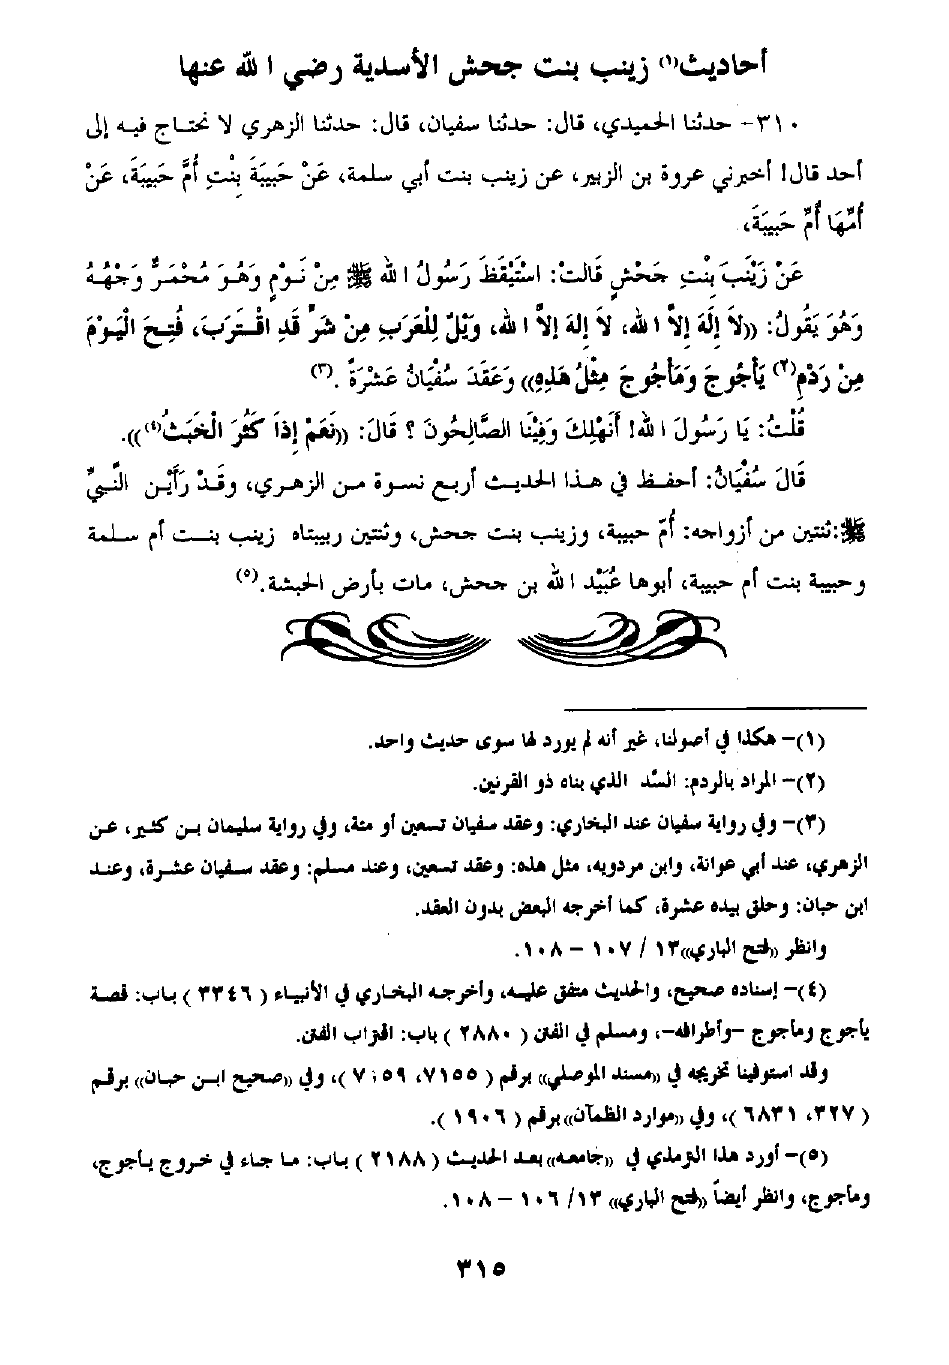 أحاديث(١) زينب بنت جحش الأسدية رضي الله عنها
٣١٠- حدثنا الحميدي، قال: حدثنا سفيان، قال: حدثنا الزهري لا نحتاج فيه إلى
أحد قال! أخبرني عروة بن الزبير، عن زينب بنت أبي سلمة، عَنْ حَبِيبَةَ بِنْتِ أُمَّ حَبِيبَةَ، عَنْ
أُمِّهَا أُمِّ حَبِيبَةَ،
عَنْ زَيْنَبَ بِنْتِ جَحْشٍ قَالَتْ: اسْتَيْقَظَ رَسُولُ الله ﷺ مِنْ نَوْمٍ وَهُوَ مُحْمَرٌّ وَجْهُهُ
وَهُوَ يَقُولُ: ((لاَ إِلَهَ إِلاَّ الله، لاَ إِلهَ إِلاَّ الله، وَيْلٌ لِلْعَرَبِ مِنْ شَرٍّ قَدِ اقْتَرَبَ، فُتِحَ الْيَوْمَ
مِنْ رَدْمِ(٢) يَأْجُوجَ وَمَأْجُوجَ مِثْلُ هَذِهِ)) وَعَقَدَ سُفْيَانُ عَشْرَةً .(٣)
قُلْتُ: يَا رَسُولَ الله! أَنَهْلِكَ وَفِيْنَا الصَّالِحُونَ ؟ قَالَ: ((نَعَمْ إِذَا كَثُرَ الْخَبَثُ(٤))).
قَالَ سُفْيَانُ: أحفظ في هذا الحديث أربع نسوة من الزهري، وقَدْ رَأَيْن النَّبِيَّ
ﷺ:ثنتين من أزواجه: أُمّ حبيبة، وزينب بنت جحش، وثنتين ربيبتاه زينب بنت أم سلمة
وحبيبة بنت أم حبيبة، أبوها عُبَيْد الله بن جحش، مات بأرض الحبشة.(٥)
(١)- هكذا في أصولنا، غير أنه لم يورد لها سوى حديث واحد.
(٢)- المراد بالردم: السَّد الذي بناه ذو القرنين.
(٣)- وفي رواية سفيان عند البخاري: وعقد سفيان تسعين أو مئة، وفي رواية سليمان بن كثير، عن
الزهري، عند أبي عوانة، وابن مردويه، مثل هذه: وعقد تسعين، وعند مسلم: وعقد سفيان عشرة، وعند
ابن حبان: وحلق بيده عشرة، كما أخرجه البعض بدون العقد.
وانظر ((فتح الباري))١٣ / ١٠٧ - ١٠٨.
(٤)- إسناده صحيح، والحديث متفق عليه، وأخرجه البخاري في الأنبياء ( ٣٣٤٦ ) باب: قصة
يأجوج ومأجوج -وأطرافه-، ومسلم في الفتن ( ٢٨٨٠ ) باب: اقتراب الفتن.
وقد استوفينا تخريجه في ((مسند الموصلي)) برقم ( ٧١٥٥، ٧١٥٩ )، وفي ((صحيح ابن حبان)) برقم
( ٣٢٧، ٦٨٣١ )، وفي ((موارد الظمآن)) برقم ( ١٩٠٦ ).
(٥)- أورد هذا الترمذي في ((جامعه)) بعد الحديث ( ٢١٨٨ ) باب: ما جاء في خروج يأجوج،
ومأجوج، وانظر أيضاً ((فتح الباري)) ١٣/ ١٠٦ - ١٠٨.
٣١٥